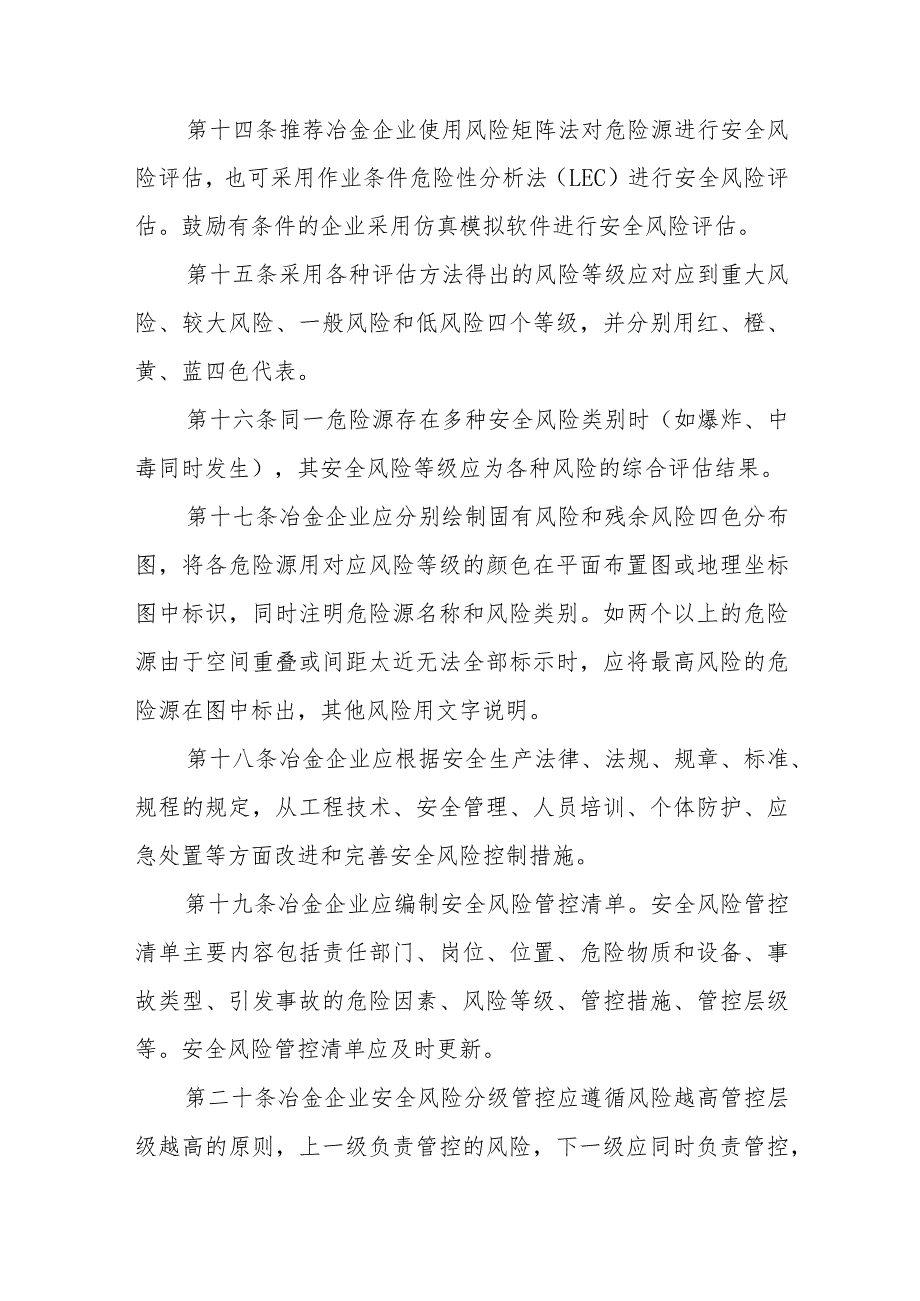 第十四条推荐冶金企业使用风险矩阵法对危险源进行安全风
险评估,也可采用作业条件危险性分析法（LEC）进行安全风险评
估。鼓励有条件的企业采用仿真模拟软件进行安全风险评估。
第十五条采用各种评估方法得出的风险等级应对应到重大风
险、较大风险、一般风险和低风险四个等级，并分别用红、橙、
黄、蓝四色代表。
第十六条同一危险源存在多种安全风险类别时（如爆炸、中
毒同时发生），其安全风险等级应为各种风险的综合评估结果。
第十七条冶金企业应分别绘制固有风险和残余风险四色分布
图，将各危险源用对应风险等级的颜色在平面布置图或地理坐标
图中标识，同时注明危险源名称和风险类别。如两个以上的危险
源由于空间重叠或间距太近无法全部标示时，应将最高风险的危
险源在图中标出，其他风险用文字说明。
第十八条冶金企业应根据安全生产法律、法规、规章、标准、
规程的规定，从工程技术、安全管理、人员培训、个体防护、应
急处置等方面改进和完善安全风险控制措施。
第十九条冶金企业应编制安全风险管控清单。安全风险管控
清单主要内容包括责任部门、岗位、位置、危险物质和设备、事
故类型、引发事故的危险因素、风险等级、管控措施、管控层级
等。安全风险管控清单应及时更新。
第二十条冶金企业安全风险分级管控应遵循风险越高管控层
级越高的原则，上一级负责管控的风险，下一级应同时负责管控，